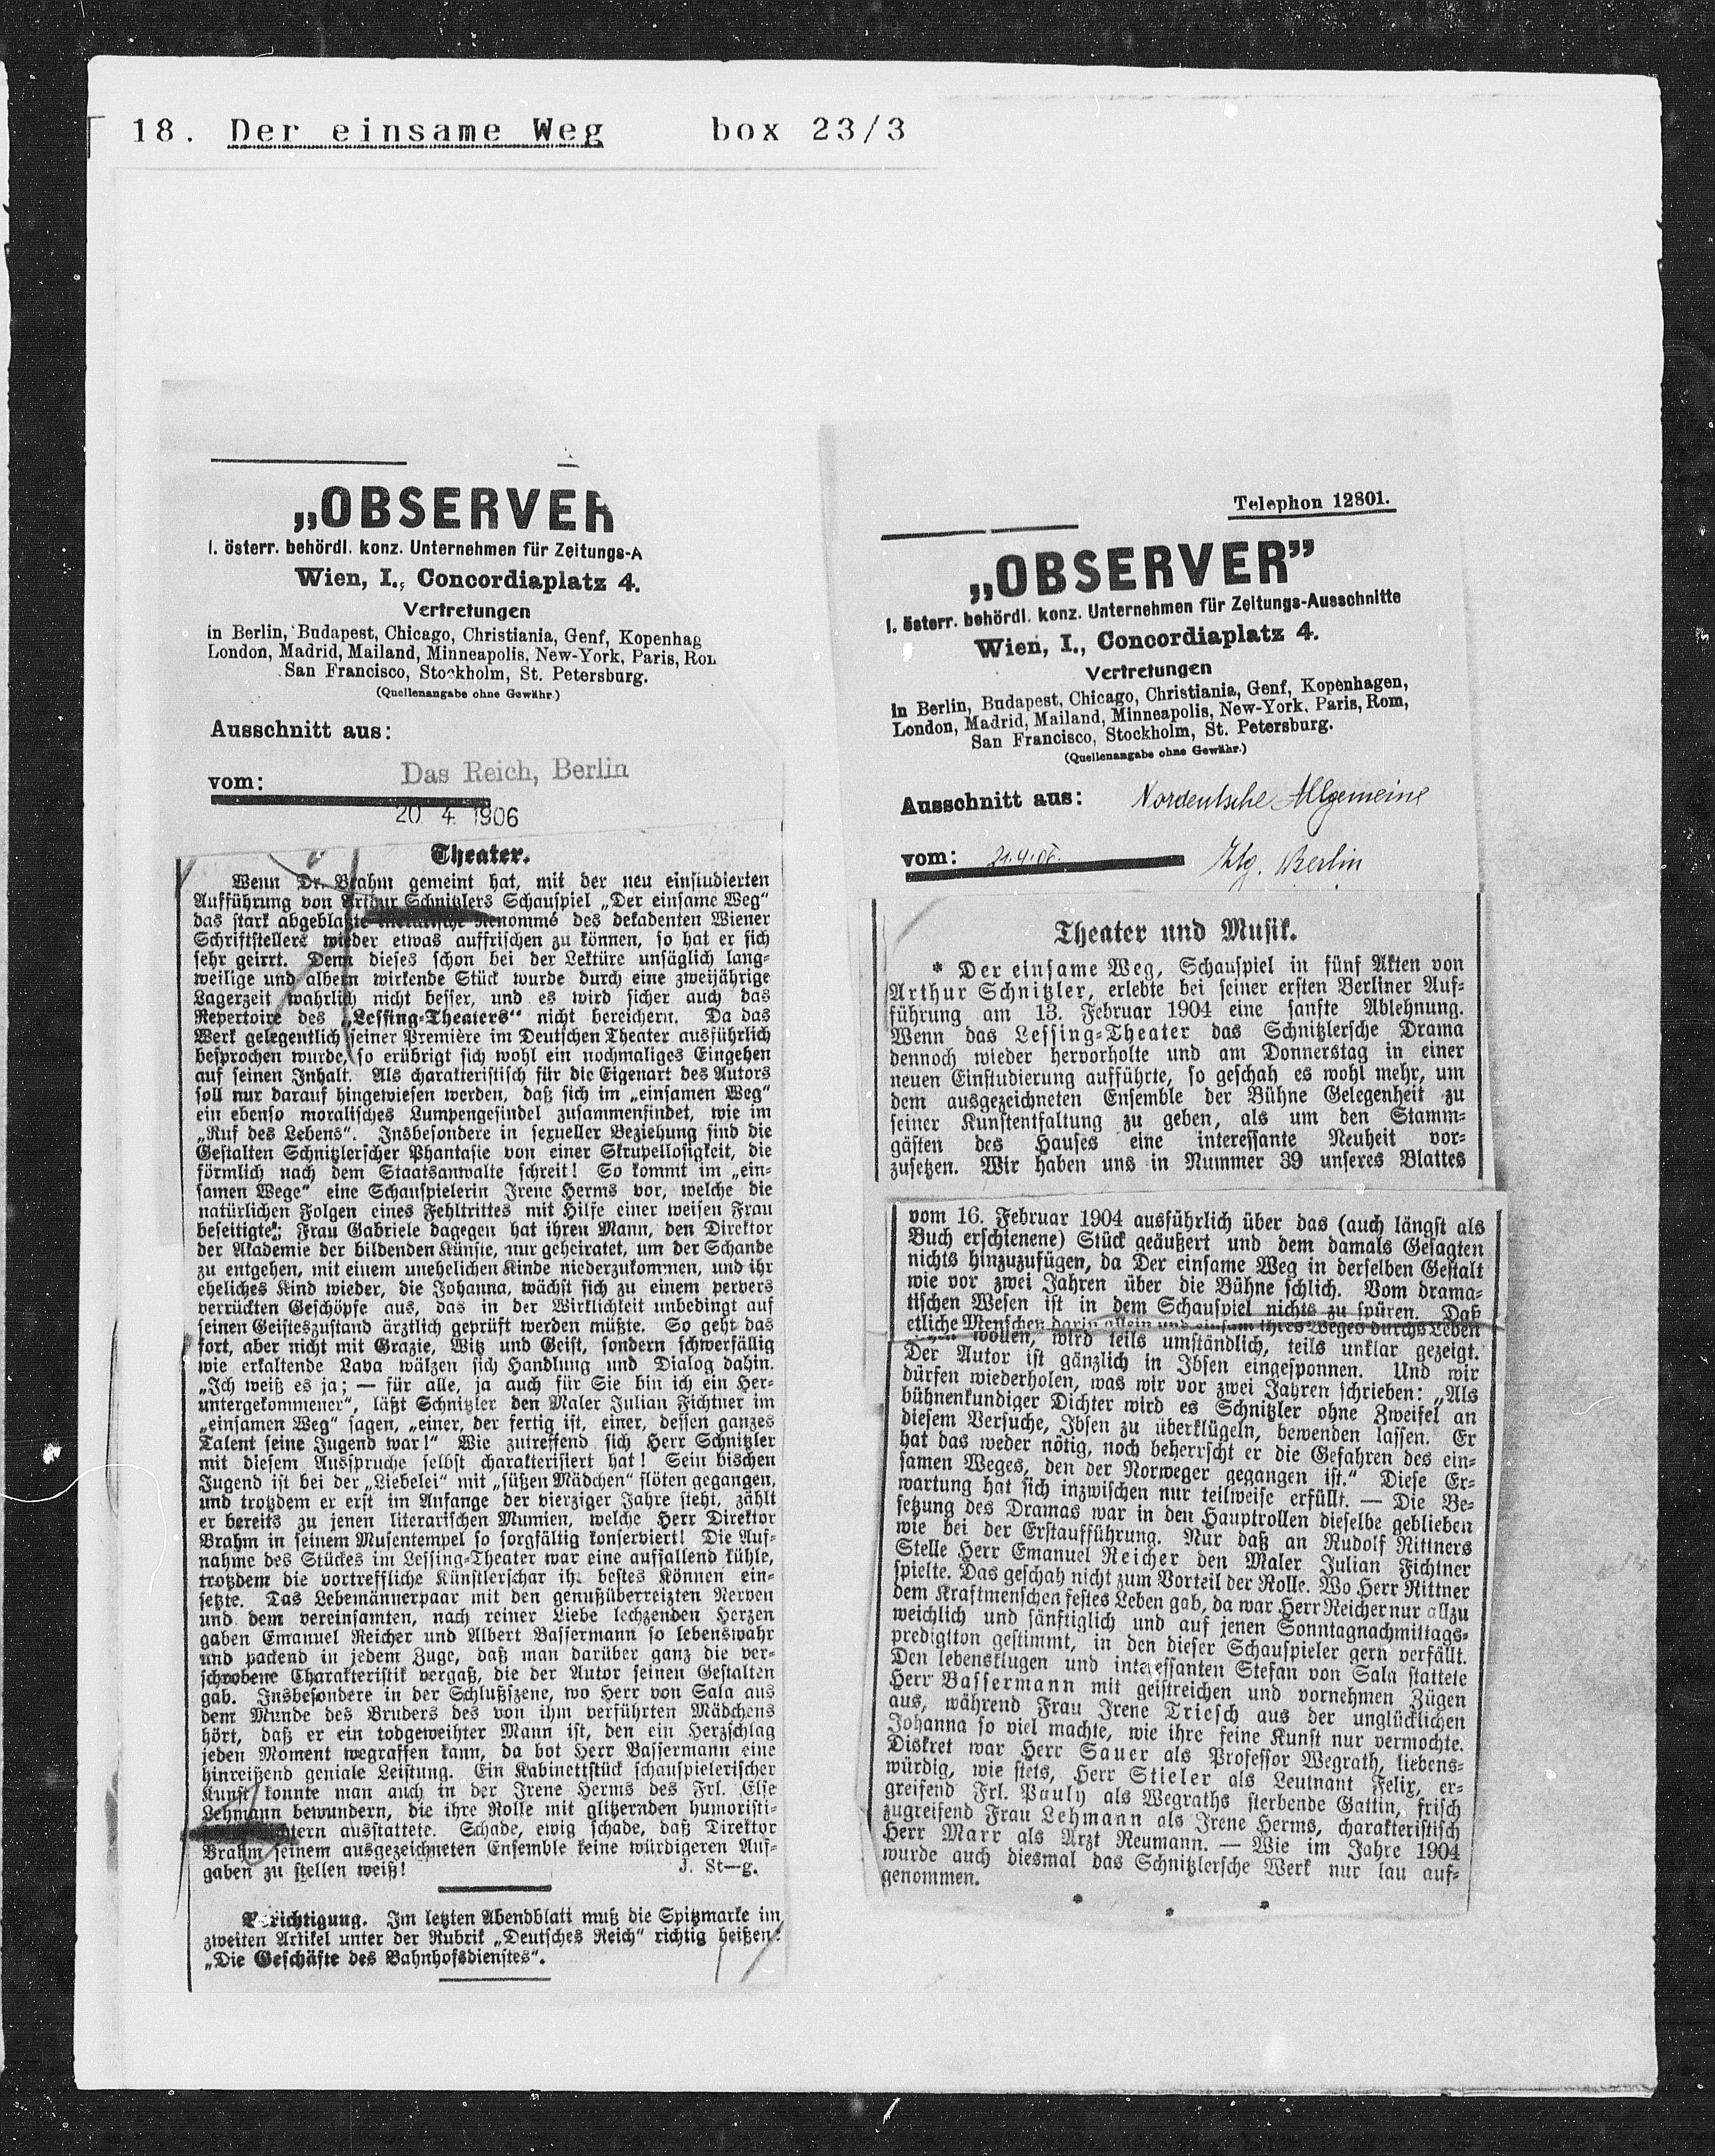 18. Der einsame Weg box 23/3
„OBSERVER
I. österr. behördl. konz. Unternehmen für Zeitungs-A
Wien, I., Concordiaplatz 4.
Vertretungen
in Berlin, Budapest, Chicago, Christiania, Genf, Kopenhag
London, Madrid, Mailand, Minneapolis, New-York, Paris, Rom
San Francisco, Stockholm, St. Petersburg.
(Quellenangabe ohne Gewähr.)
Ausschnitt aus:
Das Reich, Berlin
vom:
20 4 1906
Theater.
Wenn Dr. Brahm gemeint hat, mit der neu einstudierten
Aufführung von Arthur Schnitzlers Schauspiel „Der einsame Weg“
das stark abgeblaßte literarische Renommé des dekadenten Wiener
Schriftstellers wieder etwas auffrischen zu können, so hat er sich
sehr geirrt. Denn dieses schon bei der Lektüre unsäglich lang-
weilige und albern wirkende Stück wurde durch eine zweijährige
Lagerzeit wahrlich nicht besser, und es wird sicher auch das
Repertoire des „Lessing-Theaters“ nicht bereichern. Da das
Werk gelegentlich seiner Première im Deutschen Theater ausführlich
besprochen wurde, so erübrigt sich wohl ein nochmaliges Eingehen
auf seinen Inhalt. Als charakteristisch für die Eigenart des Autors
soll nur darauf hingewiesen werden, daß sich im „einsamen Weg“
ein ebenso moralisches Lumpengesindel zusammenfindet, wie im
„Ruf des Lebens“. Insbesondere in sexueller Beziehung sind die
Gestalten Schnitzlerscher Phantasie von einer Skrupellosigkeit, die
förmlich nach dem Staatsanwalte schreit! So kommt im „ein-
samen Wege“ eine Schauspielerin Irene Herms vor, welche die
natürlichen Folgen eines Fehltrittes mit Hilfe einer weisen Frau
beseitigte; Frau Gabriele dagegen hat ihren Mann, den Direktor
der Akademie der bildenden Künste, nur geheiratet, um der Schande
zu entgehen, mit einem unehelichen Kinde niederzukommen, und ihr
eheliches Kind wieder, die Johanna, wächst sich zu einem pervers
verrückten Geschöpfe aus, das in der Wirklichkeit unbedingt auf
seinen Geisteszustand ärztlich geprüft werden müßte. So geht das
fort, aber nicht mit Grazie, Witz und Geist, sondern schwerfällig
wie erkaltende Lava wälzen sich Handlung und Dialog dahin.
„Ich weiß es ja; — für alle, ja auch für Sie bin ich ein Her-
untergekommener“, läßt Schnitzler den Maler Julian Fichtner im
„einsamen Weg“ sagen, „einer, der fertig ist, einer, dessen ganzes
Talent seine Jugend war!“ Wie zutreffend sich Herr Schnitzler
mit diesem Ausspruche selbst charakterisiert hat! Sein bischen
Jugend ist bei der „Liebelei“ mit „süßen Mädchen“ flöten gegangen,
und trotzdem er erst im Anfange der vierziger Jahre steht, zählt
er bereits zu jenen literarischen Mumien, welche Herr Direktor
Brahm in seinem Musentempel so sorgfältig konserviert! Die Auf-
nahme des Stückes im Lessing-Theater war eine auffallend kühle,
trotzdem die vortreffliche Künstlerschar ihr bestes Können ein-
setzte. Das Lebemännerpaar mit den genußüberreizten Nerven
und dem vereinsamten, nach reiner Liebe lechzenden Herzen
gaben Emanuel Reicher und Albert Bassermann so lebenswahr
und packend in jedem Zuge, daß man darüber ganz die ver-
schrobene Charakteristik vergaß, die der Autor seinen Gestalten
gab. Insbesondere in der Schlußszene, wo Herr von Sala aus
dem Munde des Bruders des von ihm verführten Mädchens
hört, daß er ein todgeweihter Mann ist, den ein Herzschlag
jeden Moment wegraffen kann, da bot Herr Bassermann eine
hinreißend geniale Leistung. Ein Kabinettstück schauspielerischer
Kunst konnte man auch in der Irene Herms des Frl. Else
Lehmann bewundern, die ihre Rolle mit glitzernden humoristi-
tern ausstattete. Schade, ewig schade, daß Direktor
Brahm seinem ausgezeichneten Ensemble keine würdigeren Auf-
gaben zu stellen weiß! J. St—g.
Berichtigung. Im letzten Abendblatt muß die Spitzmarke im
zweiten Artikel unter der Rubrik „Deutsches Reich“ richtig heißen:
„Die Geschäfte des Bahnhofsdienstes“.
Telephon 12801.
„OBSERVER”
I. österr. behördl. konz. Unternehmen für Zeitungs-Ausschnitte
Wien, I., Concordiaplatz 4.
Vertretungen
in Berlin, Budapest, Chicago, Christiania, Genf, Kopenhagen,
London, Madrid, Mailand, Minneapolis, New-York, Paris, Rom,
San Francisco, Stockholm, St. Petersburg.
(Quellenangabe ohne Gewähr.)
Ausschnitt aus: Nordeutsche Allgemeine
vom: 21.4.06. Ztg. Berlin
Theater und Musik.
* Der einsame Weg, Schauspiel in fünf Akten von
Arthur Schnitzler, erlebte bei seiner ersten Berliner Auf-
führung am 13. Februar 1904 eine sanfte Ablehnung.
Wenn das Lessing-Theater das Schnitzlersche Drama
dennoch wieder hervorholte und am Donnerstag in einer
neuen Einstudierung aufführte, so geschah es wohl mehr, um
dem ausgezeichneten Ensemble der Bühne Gelegenheit zu
seiner Kunstentfaltung zu geben, als um den Stamm-
gästen des Hauses eine interessante Neuheit vor-
zusetzen. Wir haben uns in Nummer 39 unseres Blattes
vom 16. Februar 1904 ausführlich über das (auch längst als
Buch erschienene) Stück geäußert und dem damals Gesagten
nichts hinzuzufügen, da Der einsame Weg in derselben Gestalt
wie vor zwei Jahren über die Bühne schlich. Vom drama-
tischen Wesen ist in dem Schauspiel nichts zu spüren. Daß
etliche Menschen darin allein und einsam ihres Weges durchs Leben
wollen, wird teils umständlich, teils unklar gezeigt.
Der Autor ist gänzlich in Ibsen eingesponnen. Und wir
dürfen wiederholen, was wir vor zwei Jahren schrieben: „Als
bühnenkundiger Dichter wird es Schnitzler ohne Zweifel an
diesem Versuche, Ibsen zu überklügeln, bewenden lassen. Er
hat das weder nötig, noch beherrscht er die Gefahren des ein-
samen Weges, den der Norweger gegangen ist.“ Diese Er-
wartung hat sich inzwischen nur teilweise erfüllt. — Die Be-
setzung des Dramas war in den Hauptrollen dieselbe geblieben
wie bei der Erstaufführung. Nur daß an Rudolf Rittners
Stelle Herr Emanuel Reicher den Maler Julian Fichtner
spielte. Das geschah nicht zum Vorteil der Rolle. Wo Herr Rittner
dem Kraftmenschen festes Leben gab, da war Herr Reicher nur allzu
weichlich und sänftiglich und auf jenen Sonntagnachmittags-
predigtton gestimmt, in den dieser Schauspieler gern verfällt.
Den lebensklugen und interessanten Stefan von Sala stattete
Herr Bassermann mit geistreichen und vornehmen Zügen
aus, während Frau Irene Triesch aus der unglücklichen
Johanna so viel machte, wie ihre feine Kunst nur vermochte.
Diskret war Herr Sauer als Professor Wegrath, liebens-
würdig, wie stets, Herr Stieler als Leutnant Felix, er-
greifend Frl. Pauly als Wegraths sterbende Gattin, frisch
zugreifend Frau Lehmann als Irene Herms, charakteristisch
Herr Marr als Arzt Reumann. — Wie im Jahre 1904
wurde auch diesmal das Schnitzlersche Werk nur lau auf-
genommen.